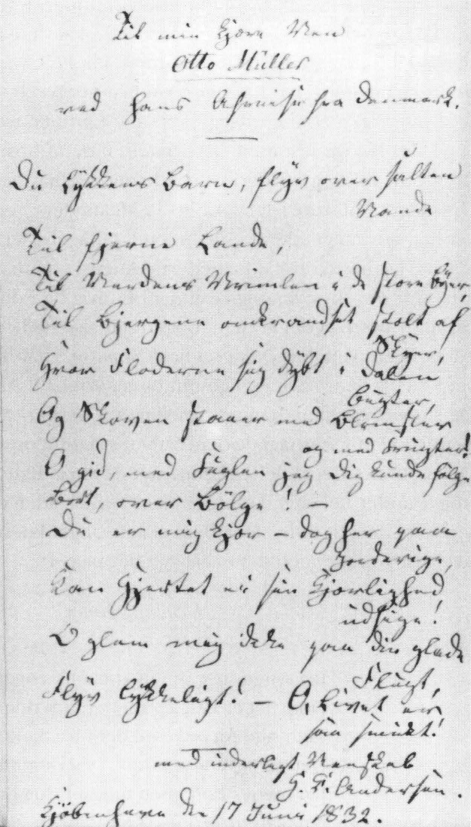 Til min kjære Ven
Otto Müller
ved hans Afreise fra Danmark.
Du Lykkens Barn, flyv over salten
Vande
Til fjerne Lande,
Til Verdens Vrimlen i de store Byer,
Til Bjergene omkrandset stolt af
Skyer,
Hvor Floderne sig dybt i Dalen
bugter,
Og Skoven staaer med Blomster
og med Frugter!
O gid, med Fuglen jeg dig kunde følge
Bort, over Bølge! –
Du er mig kjær – dog her paa
Jorderige,
Kan Hjertet ei sin Kjærlighed
udsige!
O glem mig ikke paa din glade
Flugt,
Flyv lykkeligt! – O, Livet er
saa smukt!
med inderligt Venskab
H. C. Andersen.
Kjöbenhavn den 17 Juni 1832.